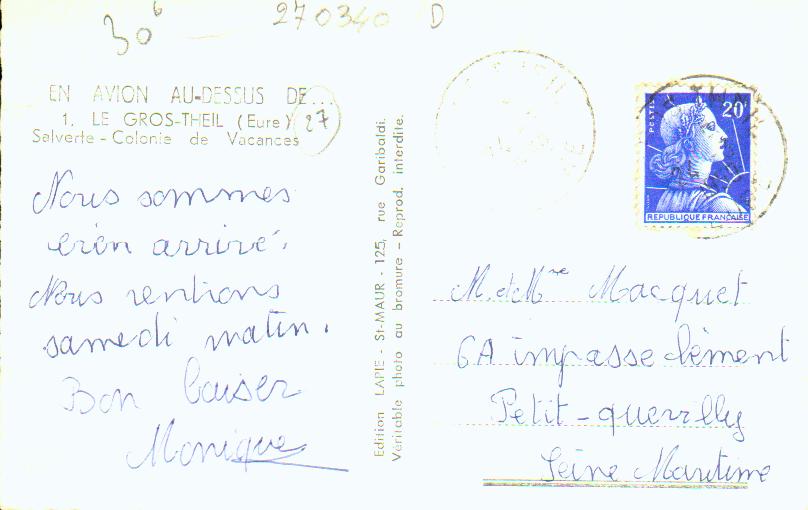 30⁶
270340 D
EN AVION AU-DESSUS DE...
1. LE GROS-THEIL (Eure)
27
Salverte - Colonie de Vacances
Nous sommes
bien arrivé.
Nous rentions
samedi matin.
Bon baiser
Monique
Edition LAPIE - St-MAUR - 125, rue Garibaldi.
Véritable photo au bromure - Reprod. interdite.
POSTES
20F
REPUBLIQUE FRANÇAISE
M. et Mme Macquet
6A impasse Clément
Petit-quevilly
Seine Maritime